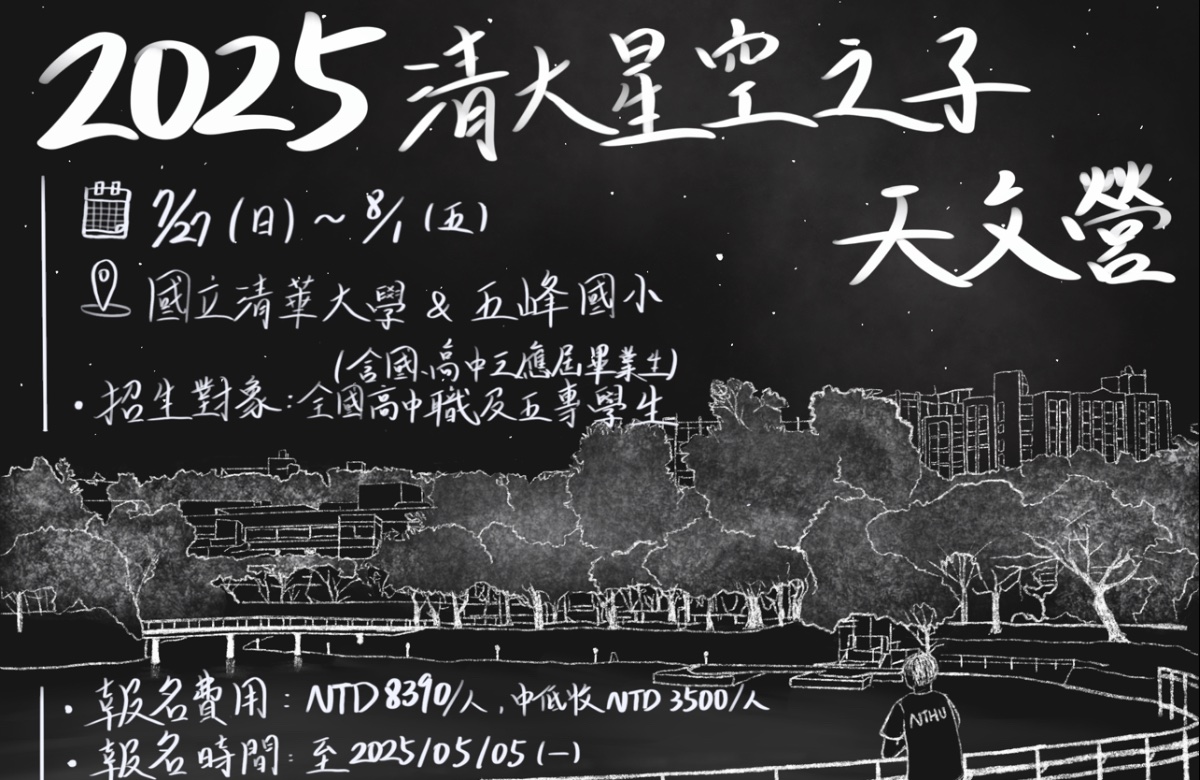 2025 清大星空之子
天文營
7/27 (日) ~ 8/1 (五)
國立清華大學 & 五峰國小
(含國、高中之應屆畢業生)
• 招生對象:全國高中職及五專學生
• 報名費用:NTD 8390/人,中低收 NTD 3500/人
• 報名時間:至 2025/05/05 (一)
NTHU